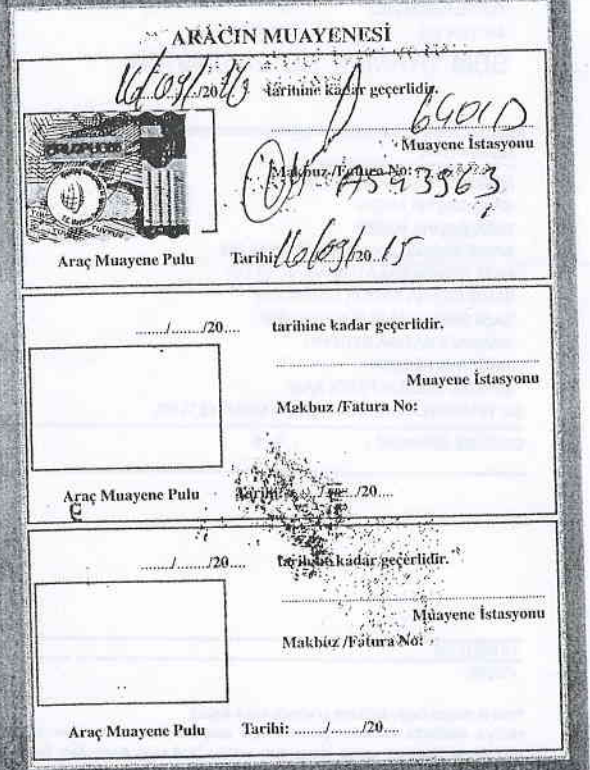 ARACIN MUAYENESİ
16/09/2016 tarihine kadar geçerlidir.
Muayene İstasyonu
Makbuz /Fatura No:
Araç Muayene Pulu Tarihi: 16/09/2015
......../......../20.... tarihine kadar geçerlidir.
Muayene İstasyonu
Makbuz /Fatura No:
Araç Muayene Pulu Tarihi: ......../......../20....
......../......../20.... tarihine kadar geçerlidir.
Muayene İstasyonu
Makbuz /Fatura No:
Araç Muayene Pulu Tarihi: ......../......../20....